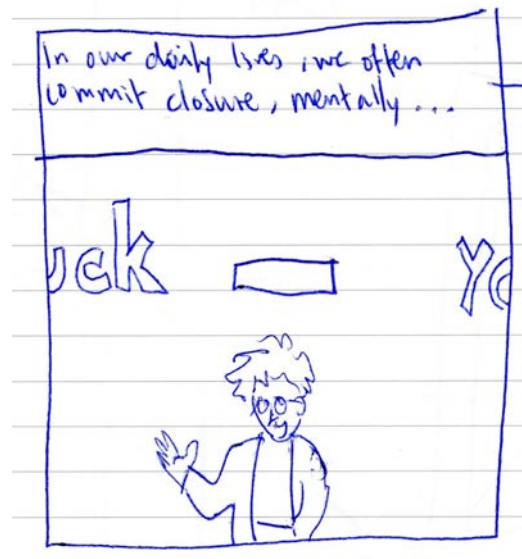 In our daily lives, we often
commit closure, mentally...
uck Yo